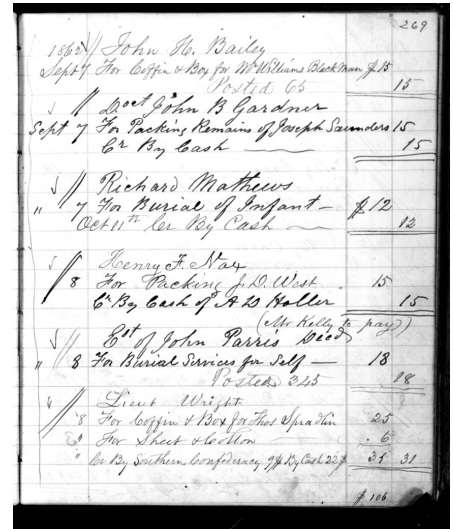 269
1862 // John H. Bailey
Sept 7 For Coffin & Box for Mr Williams Black Man $15
Posted 65 15
// Doct John B Gardner
Sept 7 For Packing Remains of Joseph Saunders 15
Cr By Cash 15
// Richard Mathews
" 7 For Burial of Infant — $12
Oct 11th Cr By Cash 12
// Henry F. Nax
8 For Packing J. D. West 15
Cr By Cash of A D Holler 15
(Mr Kelly to pay)
// Est of John Parris Decd
" 8 For Burial Services for Self — 18
Posted 345 18
" // Lieut Wright
8 For Coffin & Box for Thos Spradlin 25
" For Sheet & Cotton 6
" Cr By Southern Confederacy 9$ By Cash 22$ 31 31
$106